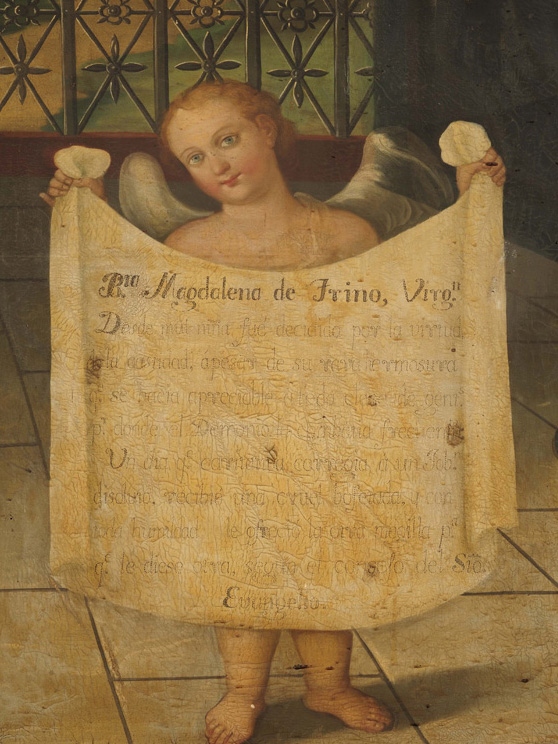 B.ta Magdalena de Trino, Virg.n
Desde muy niña fué decidida por la virtud
de la castidad, apesar de su rara hermosura
q.e se hacia apreciable a toda clase de gent.
p.r donde el Demonio la combatia
Un dia q.e carnitiva corregia á un Joben
disoluto, recibió una cruel bofetada, y con
toda humildad le ofreció la otra megilla p.a
q.e le diese otra, segun el consejo del S.to
Evangelio.